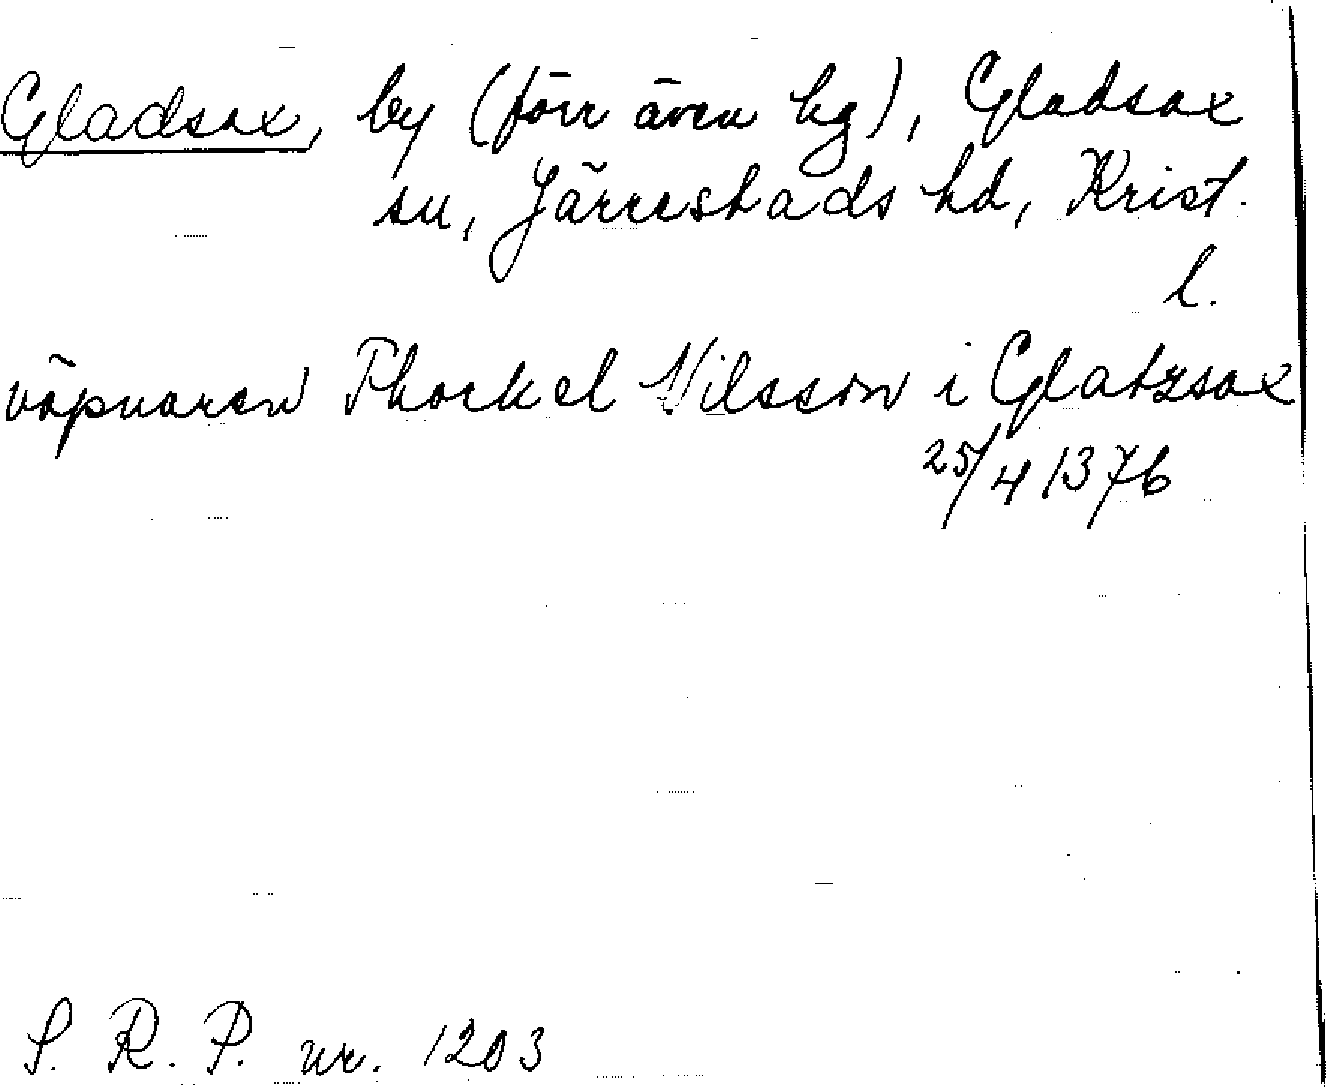 Gladsax, by (förr även hg), Gladsax
sn, Järrestads hd, Krist.
l.
väpnaren Thorkel Nilsson i Glatzsax
25/4 1376
S. R. P. nr. 1203